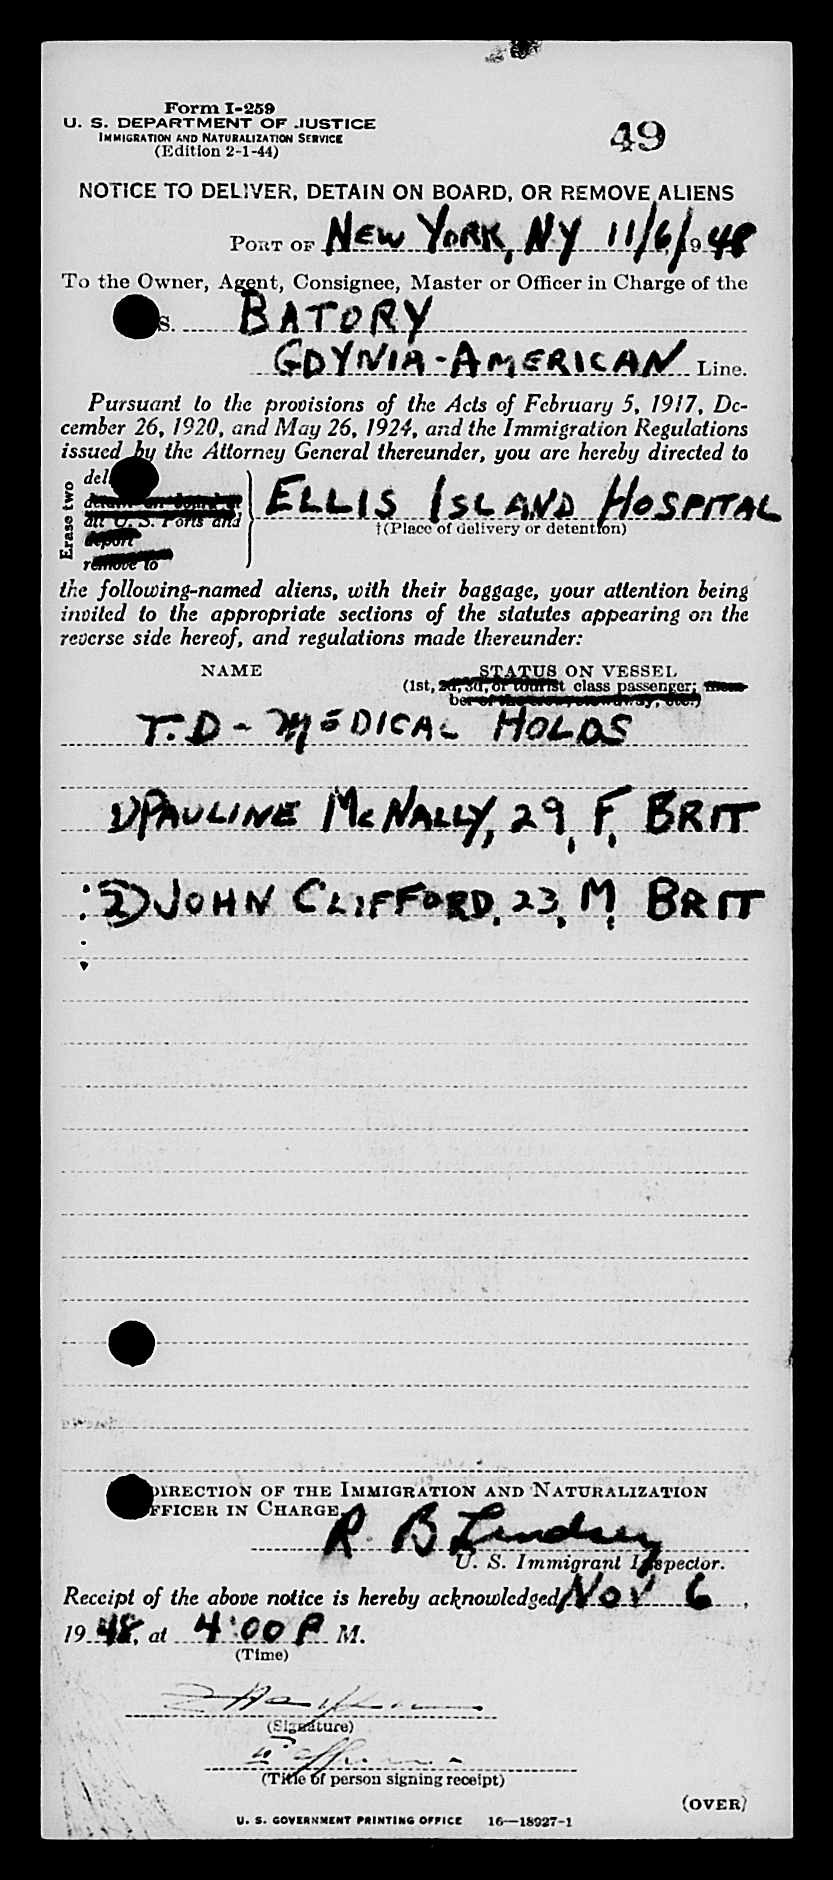 Form I-259
U. S. DEPARTMENT OF JUSTICE
IMMIGRATION AND NATURALIZATION SERVICE
(Edition 2-1-44)
49
NOTICE TO DELIVER, DETAIN ON BOARD, OR REMOVE ALIENS
PORT OF NEW YORK, NY 11/6/1948
To the Owner, Agent, Consignee, Master or Officer in Charge of the
S. BATORY
GDYNIA-AMERICAN Line.
Pursuant to the provisions of the Acts of February 5, 1917, De-
cember 26, 1920, and May 26, 1924, and the Immigration Regulations
issued by the Attorney General thereunder, you are hereby directed to
Erase two
del
detain on board at
all U. S. Ports and
deport
remove to
ELLIS ISLAND HOSPITAL
†(Place of delivery or detention)
the following-named aliens, with their baggage, your attention being
invited to the appropriate sections of the statutes appearing on the
reverse side hereof, and regulations made thereunder:
NAME STATUS ON VESSEL
(1st, 2d, 3d, or tourist class passenger; mem-
ber of the crew, stowaway, etc.)
T.D - MEDICAL HOLDS
1) PAULINE McNALLY, 29, F, BRIT
2) JOHN CLIFFORD, 23, M, BRIT
DIRECTION OF THE IMMIGRATION AND NATURALIZATION
OFFICER IN CHARGE.
R B Lindsey
U. S. Immigrant Inspector.
Receipt of the above notice is hereby acknowledged NOV 6,
1948, at 4:00 P M.
(Time)
(Signature)
(Title of person signing receipt)
(OVER)
U. S. GOVERNMENT PRINTING OFFICE 16—18927-1